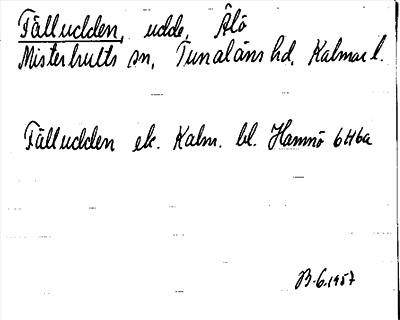 Fälludden, udde, Älö
Misterhults sn, Tunaläns hd, Kalmar l.
Fälludden ek. Kalm. bl. Hamnö 6H6a
B-6.1957